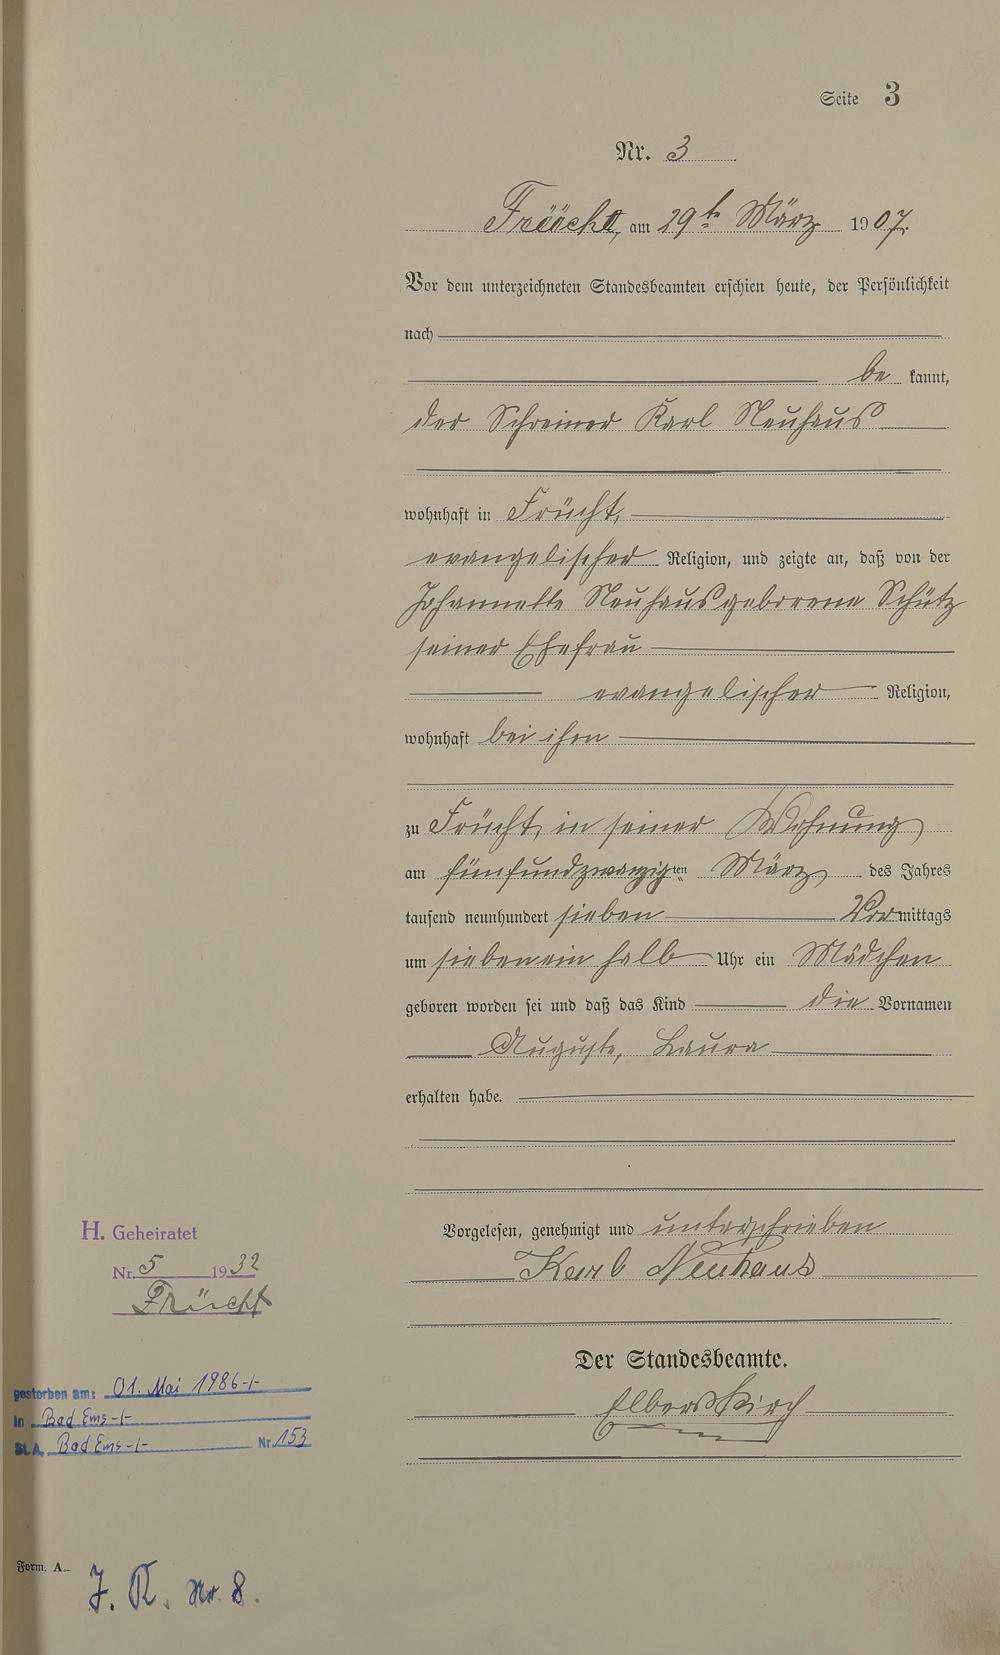 Seite 3
Nr. 3
Frücht, am 29ten März 1907.
Vor dem unterzeichneten Standesbeamten erschien heute, der Persönlichkeit
nach
be kannt,
der Schreiner Karl Neuhaus
wohnhaft in Frücht,
evangelischer Religion, und zeigte an, daß von der
Johannette Neuhaus geborene Schütz
seiner Ehefrau
evangelischer Religion,
wohnhaft bei ihm
zu Frücht, in seiner Wohnung
am fünfundzwanzigten März des Jahres
tausend neunhundert sieben Vormittags
um siebeneinhalb Uhr ein Mädchen
geboren worden sei und daß das Kind die Vornamen
Auguste, Laura
erhalten habe.
Vorgelesen, genehmigt und unterschrieben
Karl Neuhaus
Der Standesbeamte.
Elberskirch
H. Geheiratet
Nr. 5 1932
Frücht
gestorben am: 01. Mai 1986-/-
in Bad Ems-/-
St. A. Bad Ems-/- Nr. 153
Form. A
J. R. Nr. 8.